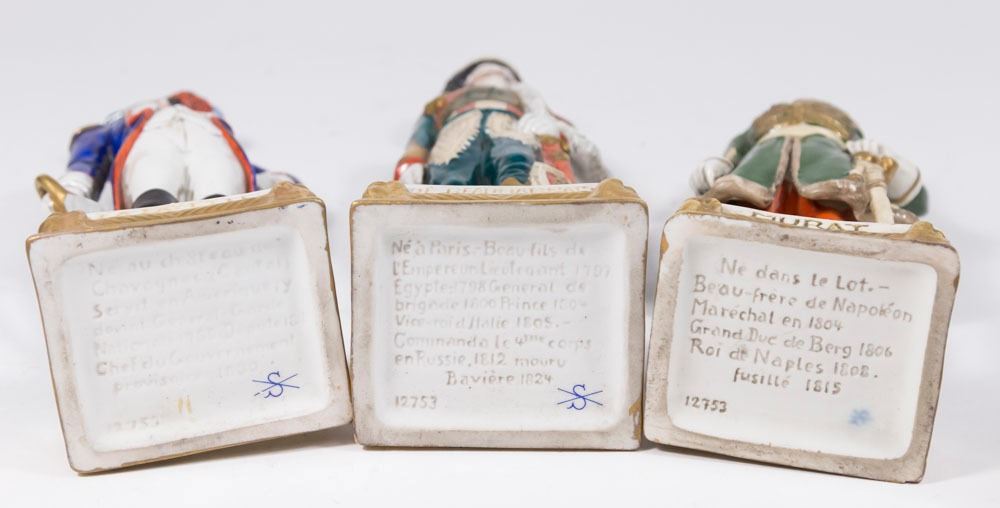 Né au château de
Chavagnac
Servit en Amérique
devint Général
Chef du Gouvernement
provisoire 1830
12753
Né à Paris.- Beau-fils de
l'Empereur Lieutenant 1797
Egypte 1798 General de
brigade 1800 Prince 1804
Vice-roi d'Italie 1805.-
Commanda le 4me corps
en Russie, 1812 mouru
Bavière 1824
12753
S
S
MURAT
Ne dans le Lot.-
Beau-frère de Napoléon
Maréchal en 1804
Grand Duc de Berg 1806
Roi de Naples 1808.
fusillé 1815
12753